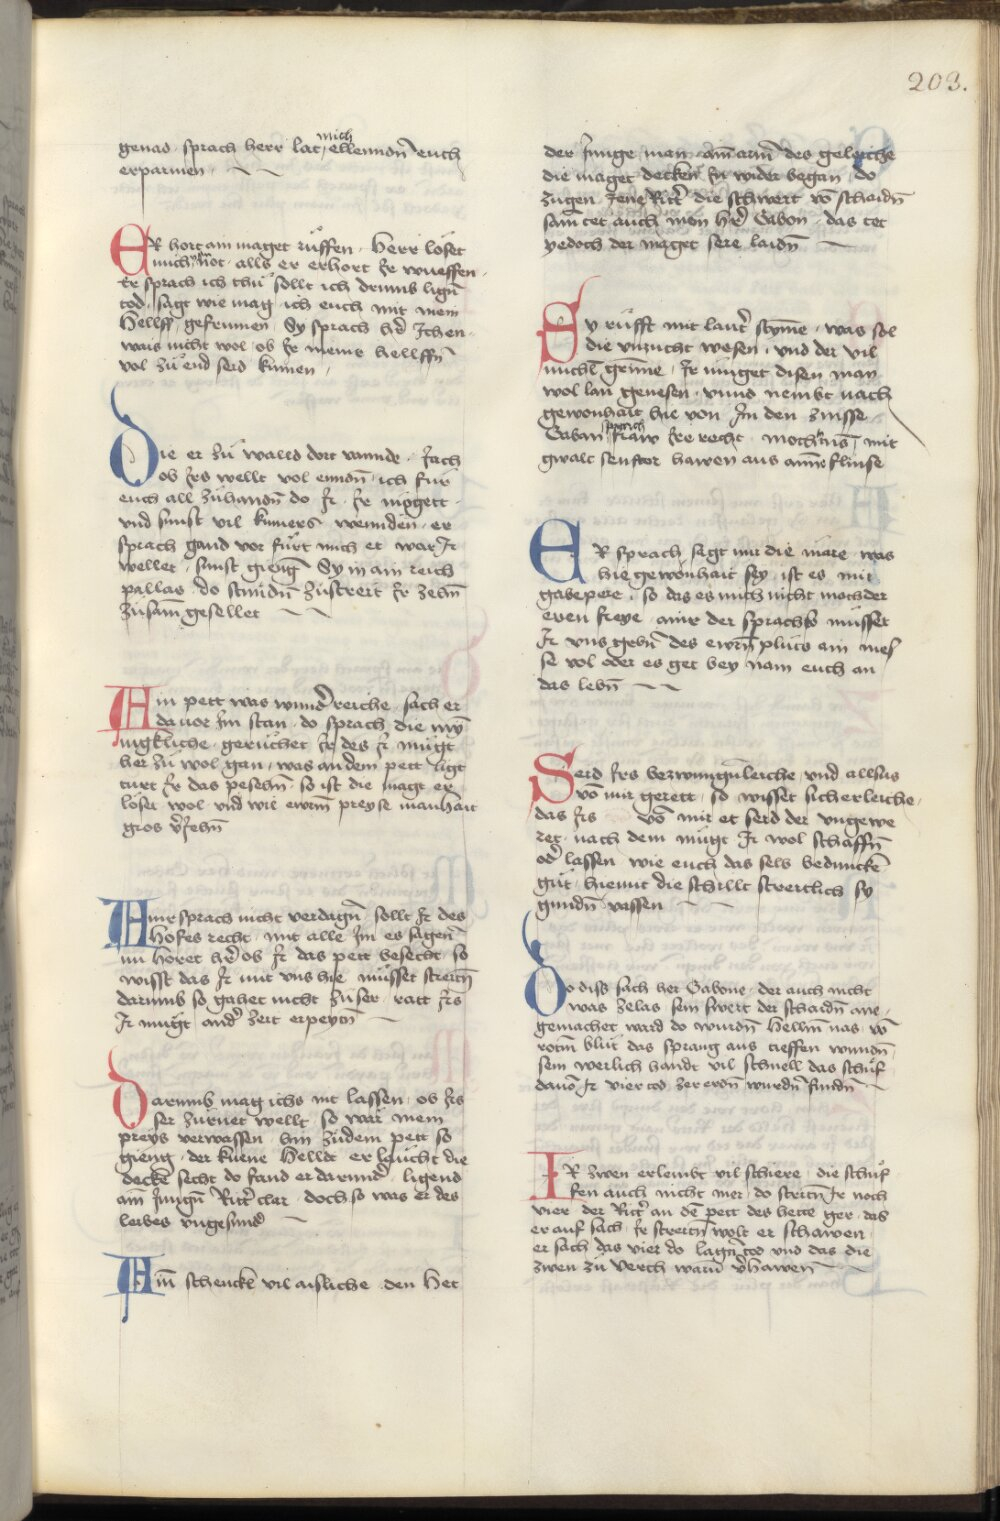 203.
genad · sprach herr lat mich ellenndn̄ euch
erparmen ·
ER hort ain maget růffen · Herr löset
mich von not · alls er erhort Ir wueffen ·
Er sprach ich thů sollt ich drumb lign̄
tod · sagt wie mag ich euch mit mein
Hellff gefrumen · Sy sprach hr̄ Ichen
wais nicht wol · ob Ir meine hellffn̄
vol zů end seid kumen ·
Die er zů walld dort vannde · Jach
ob Irs wellt vol enndn̄ · ich für
euch all zůhandn̄ do Ir · Ir mögett
vnd sunst vil kumers wennden · er
sprach gand vor fůrt mich et war Ir
wellet · sunst gieng Sy in ain reich
pallas · do stundn̄ zůstreit Ir zehn̄
zůsam̄ gesellet
Ain pett was wund̄ reiche · sach er
da uor Im stan · do sprach die my̆
nigkliche · gerůchet Ir des Ir mügt
her zů wol gan · was an dem pett ligt
turt Ir das pesehn̄ · so ist die magt er
löset wol vnd wil ewrm̄ preyse manhait
gros v̄Jehn̄
Aine sprach nicht verdagn̄ · sollt Ir des
Hofes recht · mit alle Im es sagen̄
nu höret hr̄ ob Ir das pett besecht · so
wisst das Ir mit vns hie müsset streitn̄
darumb so gahet nicht zů ser · ratt Irs
Ir mügt and̄ zeit erpeytn̄
Darumb mag ichs nit lassen · ob Irs
ser zürnet wellt · so wär mein
preys verwassen · hin zůdem pett so
gieng · der kuene Helldt er leücht die
deckē secht do fand er darund̄ · ligend
ain̄ Jungn̄ Ritt̄ clar · doch so was er des
leibes vngesund̄
Ain̄ schenckē vil aisliche · den Het
der Junge man · am̄ arm̄ des geleiche
die maget decken̄ In wider began · do
zugen Jene Ritt̄ die schwert vō schaidn̄
sam tet auch mein hr̄ Gabon · das tet
yedoch der maget sere laidn̄
Sy růfft mit laut̄ stym̄e · was sol
die vnzucht wesen · vnd der vil
michl̄ grim̄e · Ir müget disen man
wol lan genesen · vnnd nembt nach
gewonhait hie von Im den zinsse
Gaban sprach fraw Ire recht · möcht mir mit
gwalt senfter hawen aus aim̄e flinse
ER sprach sagt mir die märe · was
hie gewonhait sey · ist es mit
gabepere · so das es mich nicht mocht der
eren freye · ainr der sprachs müsset
Ir vns gebn̄ des ewrn̄ plůts ain mes
se vol oder es get bey nam euch an
das lebn̄
Seid Irs bezwungenleiche · vnd allsus
vō mir gerett · so wisset sicherleiche ·
das Irs vō mir et seid der vngewe
ret · nach dem mügt Ir wol schaffn̄
od̄ lassen · wie euch das selb beduncke
gůt · hiemit die schillt streitlich sy
gundn̄ vassen
Do diss sach her Gabone · der auch nicht
was zelas sein swert der schaidn̄ ane ·
gemachet ward do wurdn̄ hellm̄ nas vō
rotm̄ blůt das sprang aus tieffen wundn̄
sein werlich handt vil schnell das schůf
dauō Ir vier tod zer erdn̄ wurdn̄ fundn̄
IR zwen erleinbt vil schiere · die schůf
fen auch nicht mer · do stritn̄ Ir noch
vier der Ritt̄ an dē pett des hette ger · das
er auf sach Ir streitn̄ wolt er schawen ·
er sach das vier do lagn̄ tod vnd das die
zwen zů verch warn̄ v̄hawen̄